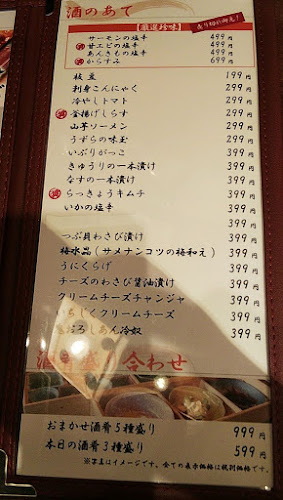 酒のあて
【厳選珍味】
売り切れ御免！
サーモンの塩辛 499円
酒 甘エビの塩辛 499円
酒 あんきもの塩辛 499円
酒 からすみ 699円
枝豆 199円
刺身こんにゃく 299円
冷やしトマト 299円
酒 釜揚げしらす 299円
山芋ソーメン 299円
うずらの味玉 299円
いぶりがっこ 399円
きゅうりの一本漬け 399円
なすの一本漬け 399円
酒 らっきょうキムチ 399円
いかの塩辛 399円
399円
つぶ貝わさび漬け 399円
梅水晶(サメナンコツの梅和え) 399円
うにくらげ 399円
チーズのわさび醤油漬け 399円
クリームチーズチャンジャ 399円
いちじくクリームチーズ 399円
おろしあん冷奴 399円
酒肴盛り合わせ
おまかせ酒肴5種盛り 999円
本日の酒肴3種盛り 599円
※写真はイメージです。全ての表示価格は税別価格です。